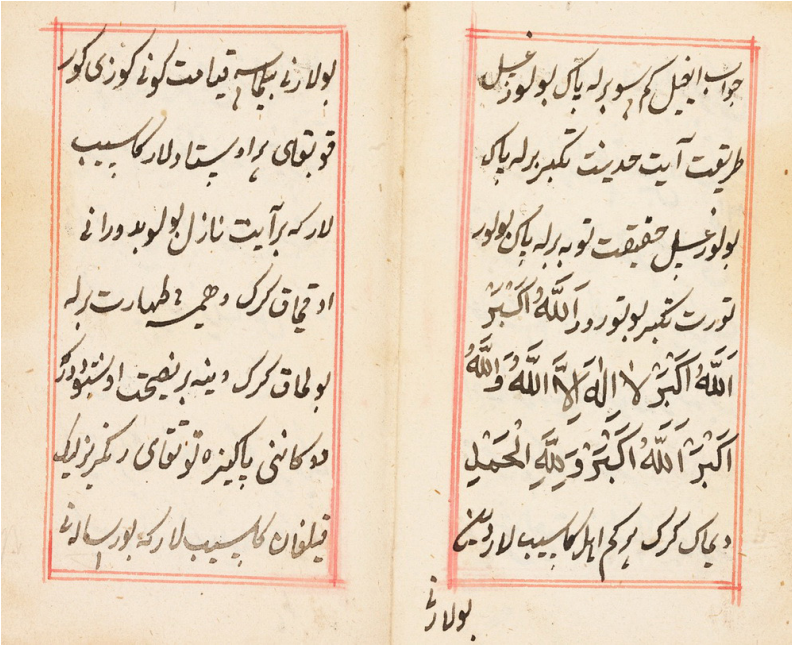 جواب ایغیل کم سو برله پاک بولور غسل
طریقت آیت حدیث تکبیر برله پاک
بولور غسل حقیقت توبه برله پاک بولور
تورت تکبیر بو تورور اَللّٰهُ اَكْبَرْ
اَللّٰهُ اَكْبَرْ لا اِلٰهَ اِلَّا اللّٰهُ وَاللّٰهُ
اَكْبَرْ اَللّٰهُ اَكْبَرْ وَلِلّٰهِ الْحَمْدِ
دیماک کرک هر کم اهل کاسیب لاردین
بولارنی
بولارنی بیلماسه قیامت کونی کوزی کور
قوبقای هر اوستادلار کاسیب
لارکه بر آیت نازل بولوبدور انی
اوقماق کرک و همیشه طهارت برله
بولماق کرک وینه بر نصیحت اوشبودورکه
دوکاننی پاکیزه توتقای رنکریزلیک
قیلغان کاسیب لارکه بو رساله نی